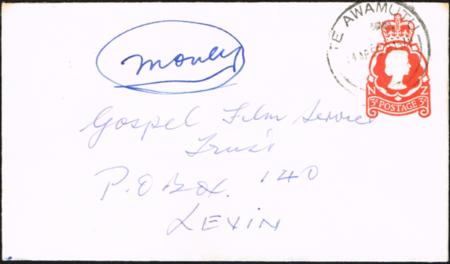 money
TE AWAMUTU
NZ
3D POSTAGE 3D
Gospel Film Service
Trust
P.O Box. 140
LEVIN